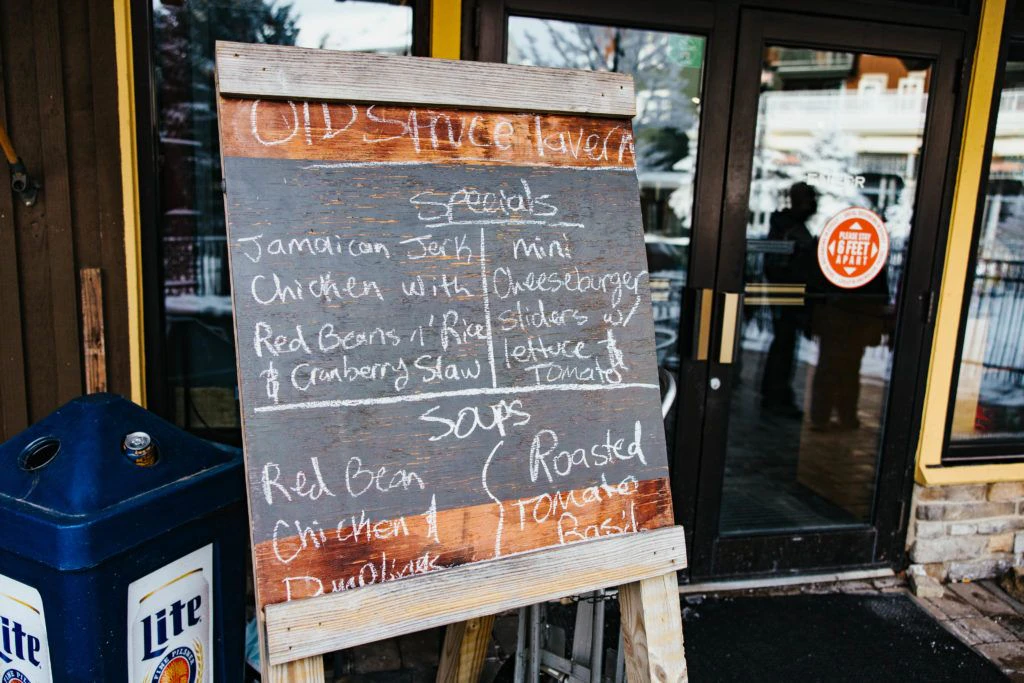 Old Spruce Tavern
Specials
Jamaican Jerk
Chicken with
Red Beans n' Rice
& Cranberry Slaw
mini
Cheeseburger
sliders w/
lettuce &
Tomato
Soups
Red Bean
Chicken &
Dumplings
Roasted
Tomato
Basil
PLEASE STAY
6 FEET
APART
Lite
FINE PILSNER
Lite